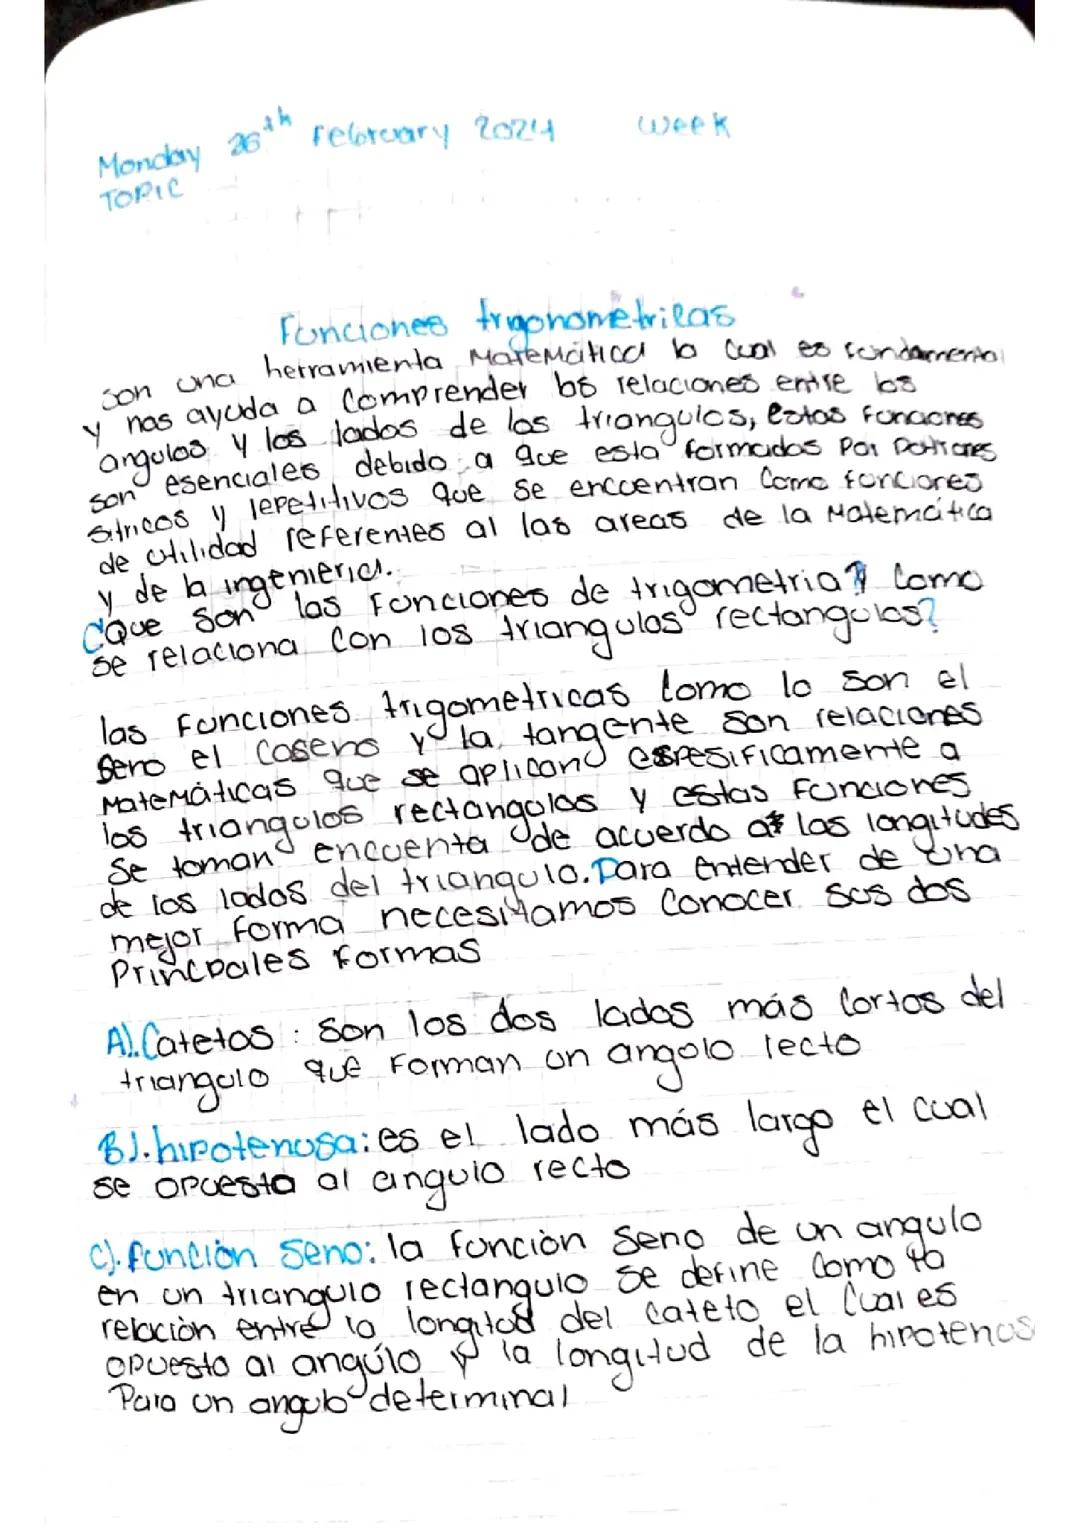 Monday 26th February 2024 week
TOPIC
Funciones trigonometricas
son una herramienta Matemática la cual es fundamental
y nos ayuda a comprender los relaciones entre los
angulos y los lados de los triangulos, estas funciones
son esenciales debido a que esta formadas por patrones
sitricos y repetitivos que se encuentran como funciones
de utilidad referentes al las areas de la Matemática
y de la ingenieria.
¿Que son las Funciones de trigometria? y como
se relaciona con los triangulos rectangulos?
las Funciones trigometricas como lo son el
seno el coseno y la tangente son relaciones
Matemáticas que se aplican espesificamente a
los triangulos rectangulos y estas Funciones
se toman encuenta de acuerdo a las longitudes
de los lados del triangulo. Para entender de una
mejor forma necesitamos conocer sus dos
Principales formas
A). Catetos: son los dos lados más cortos del
triangulo que Forman un angolo recto
B). hipotenusa: es el lado más largo el cual
se opuesta al angulo recto
C). función seno: la función seno de un angulo
en un triangulo rectangulo se define como la
relación entre la longitud del cateto el cual es
opuesto al angúlo y la longitud de la hipotenus
Para un angulo determinal